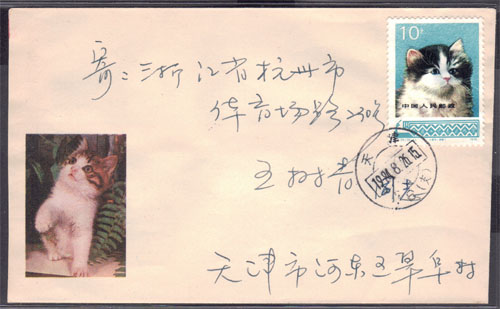 10分
中国人民邮政
寄：浙江省杭州市
体育场路
天津
1994.8.26.15
王树
天津市河东区翠阜村